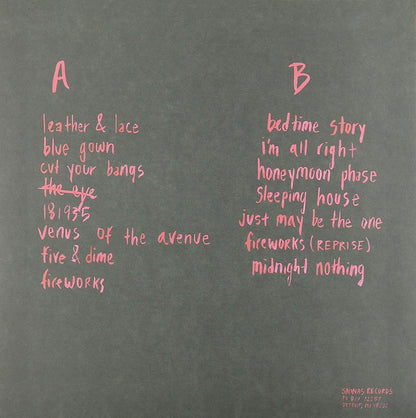 A
leather & lace
blue gown
cut your bangs
the eye
181935
venus of the avenue
five & dime
fireworks
B
bedtime story
i'm all right
honeymoon phase
sleeping house
just may be the one
fireworks (REPRISE)
midnight nothing
RECORDS
PO BOX
DETROIT, MI